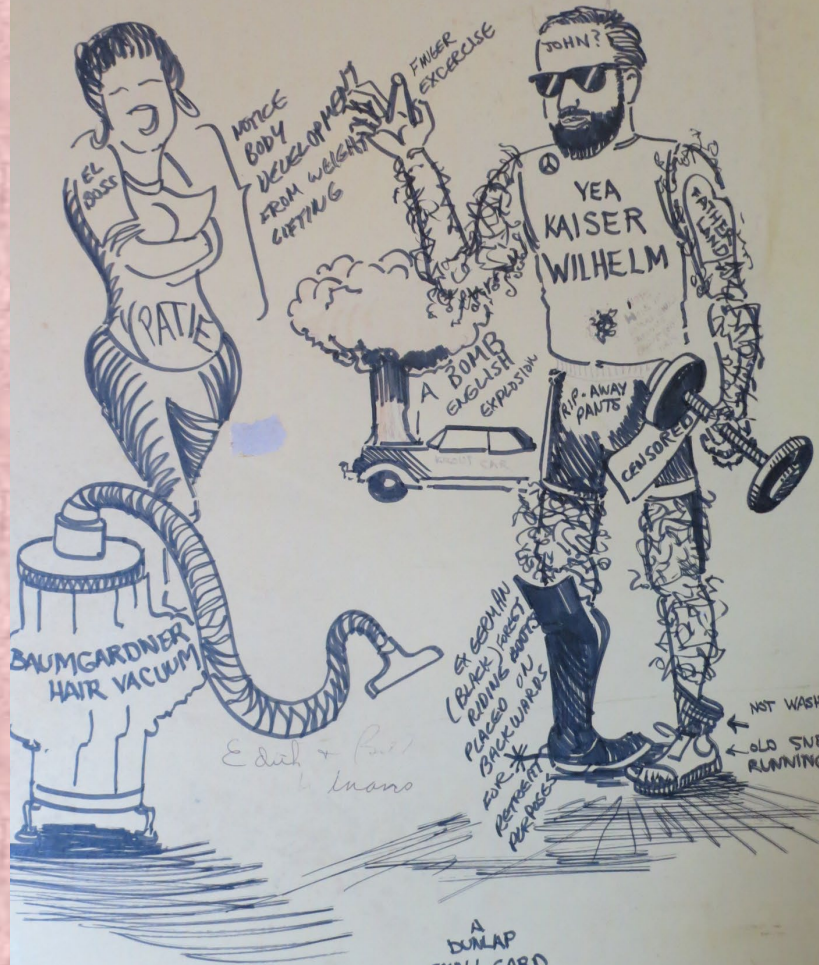 JOHN?
FINGER
EXCERCISE
NOTICE
BODY
DEVELOPMENT
FROM WEIGHT
LIFTING
EL
BOSS
PATIE
YEA
KAISER
WILHELM
FATHER
LAND
A BOMB
ENGLISH
EXPLOSION
RIP-AWAY
PANTS
CENSORED
CAR
BAUMGARDNER
HAIR VACUUM
EX GERMAN
(BLACK) FOREST
RIDING BOOTS
PLACED ON
BACKWARDS
FOR
RETREAT
PURPOSES
NOT WASH
OLD SNE
RUNNING
Edith &
A
DUNLAP
CARD